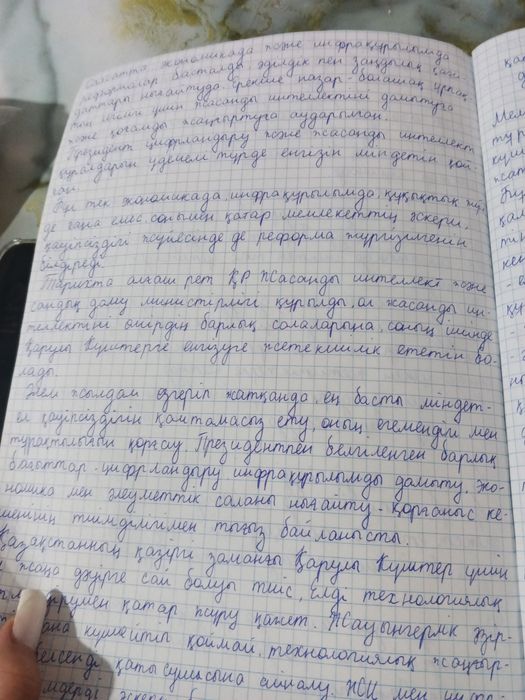 Саясатта, экономикада және инфрақұрылымда
реформалар басталды, әділдік пен заңдылық қағи-
даттары нығайтуда. Ерекше назар - болашақ ұрпақ-
тың игілігі үшін жасанды интеллектіні дамытуға
және қоғамды жаңғыртуға аударылған.
Президент цифрландыру және жасанды интеллект
құралдарын үдемелі түрде енгізуін міндетін қой-
ған.
Бұл тек экономикада, инфрақұрылымда, құқықтық жүй-
де ғана емес, сонымен қатар мемлекеттің әскери,
қауіпсіздігі жүйесінде де реформа жүргізілгенін
білдіреді.
Тарихта алғаш рет ҚР Жасанды интеллект және
сандық даму министрлігі құрылды, ол жасанды ин-
теллектіні өмірдің барлық салаларына, соның ішінде
Қарулы Күштерге енгізуге жетекшілік ететін бо-
лады.
Әлем жылдам өзгеріп жатқанда, ең басты міндет -
ел қауіпсіздігін қамтамасыз ету, оның егемендігі мен
тұрақтылығын қорғау. Президентпен белгіленген барлық
бағыттар - цифрландыру, инфрақұрылымды дамыту, эко-
номика мен әлеуметтік саланы нығайту - қорғаныс ке-
шенінің тиімділігімен тығыз байланысты.
Қазақстанның қазіргі заманғы Қарулы Күштер үшін
жаңа дәуірге сай болуы тиіс, Елді технологиялық
қатар жүру қажет. Жауынгерлік әзір-
күшейтіп қоймай, технологиялық жаңғыр-
белсенді қатысушысына айналу. ЖИ мен